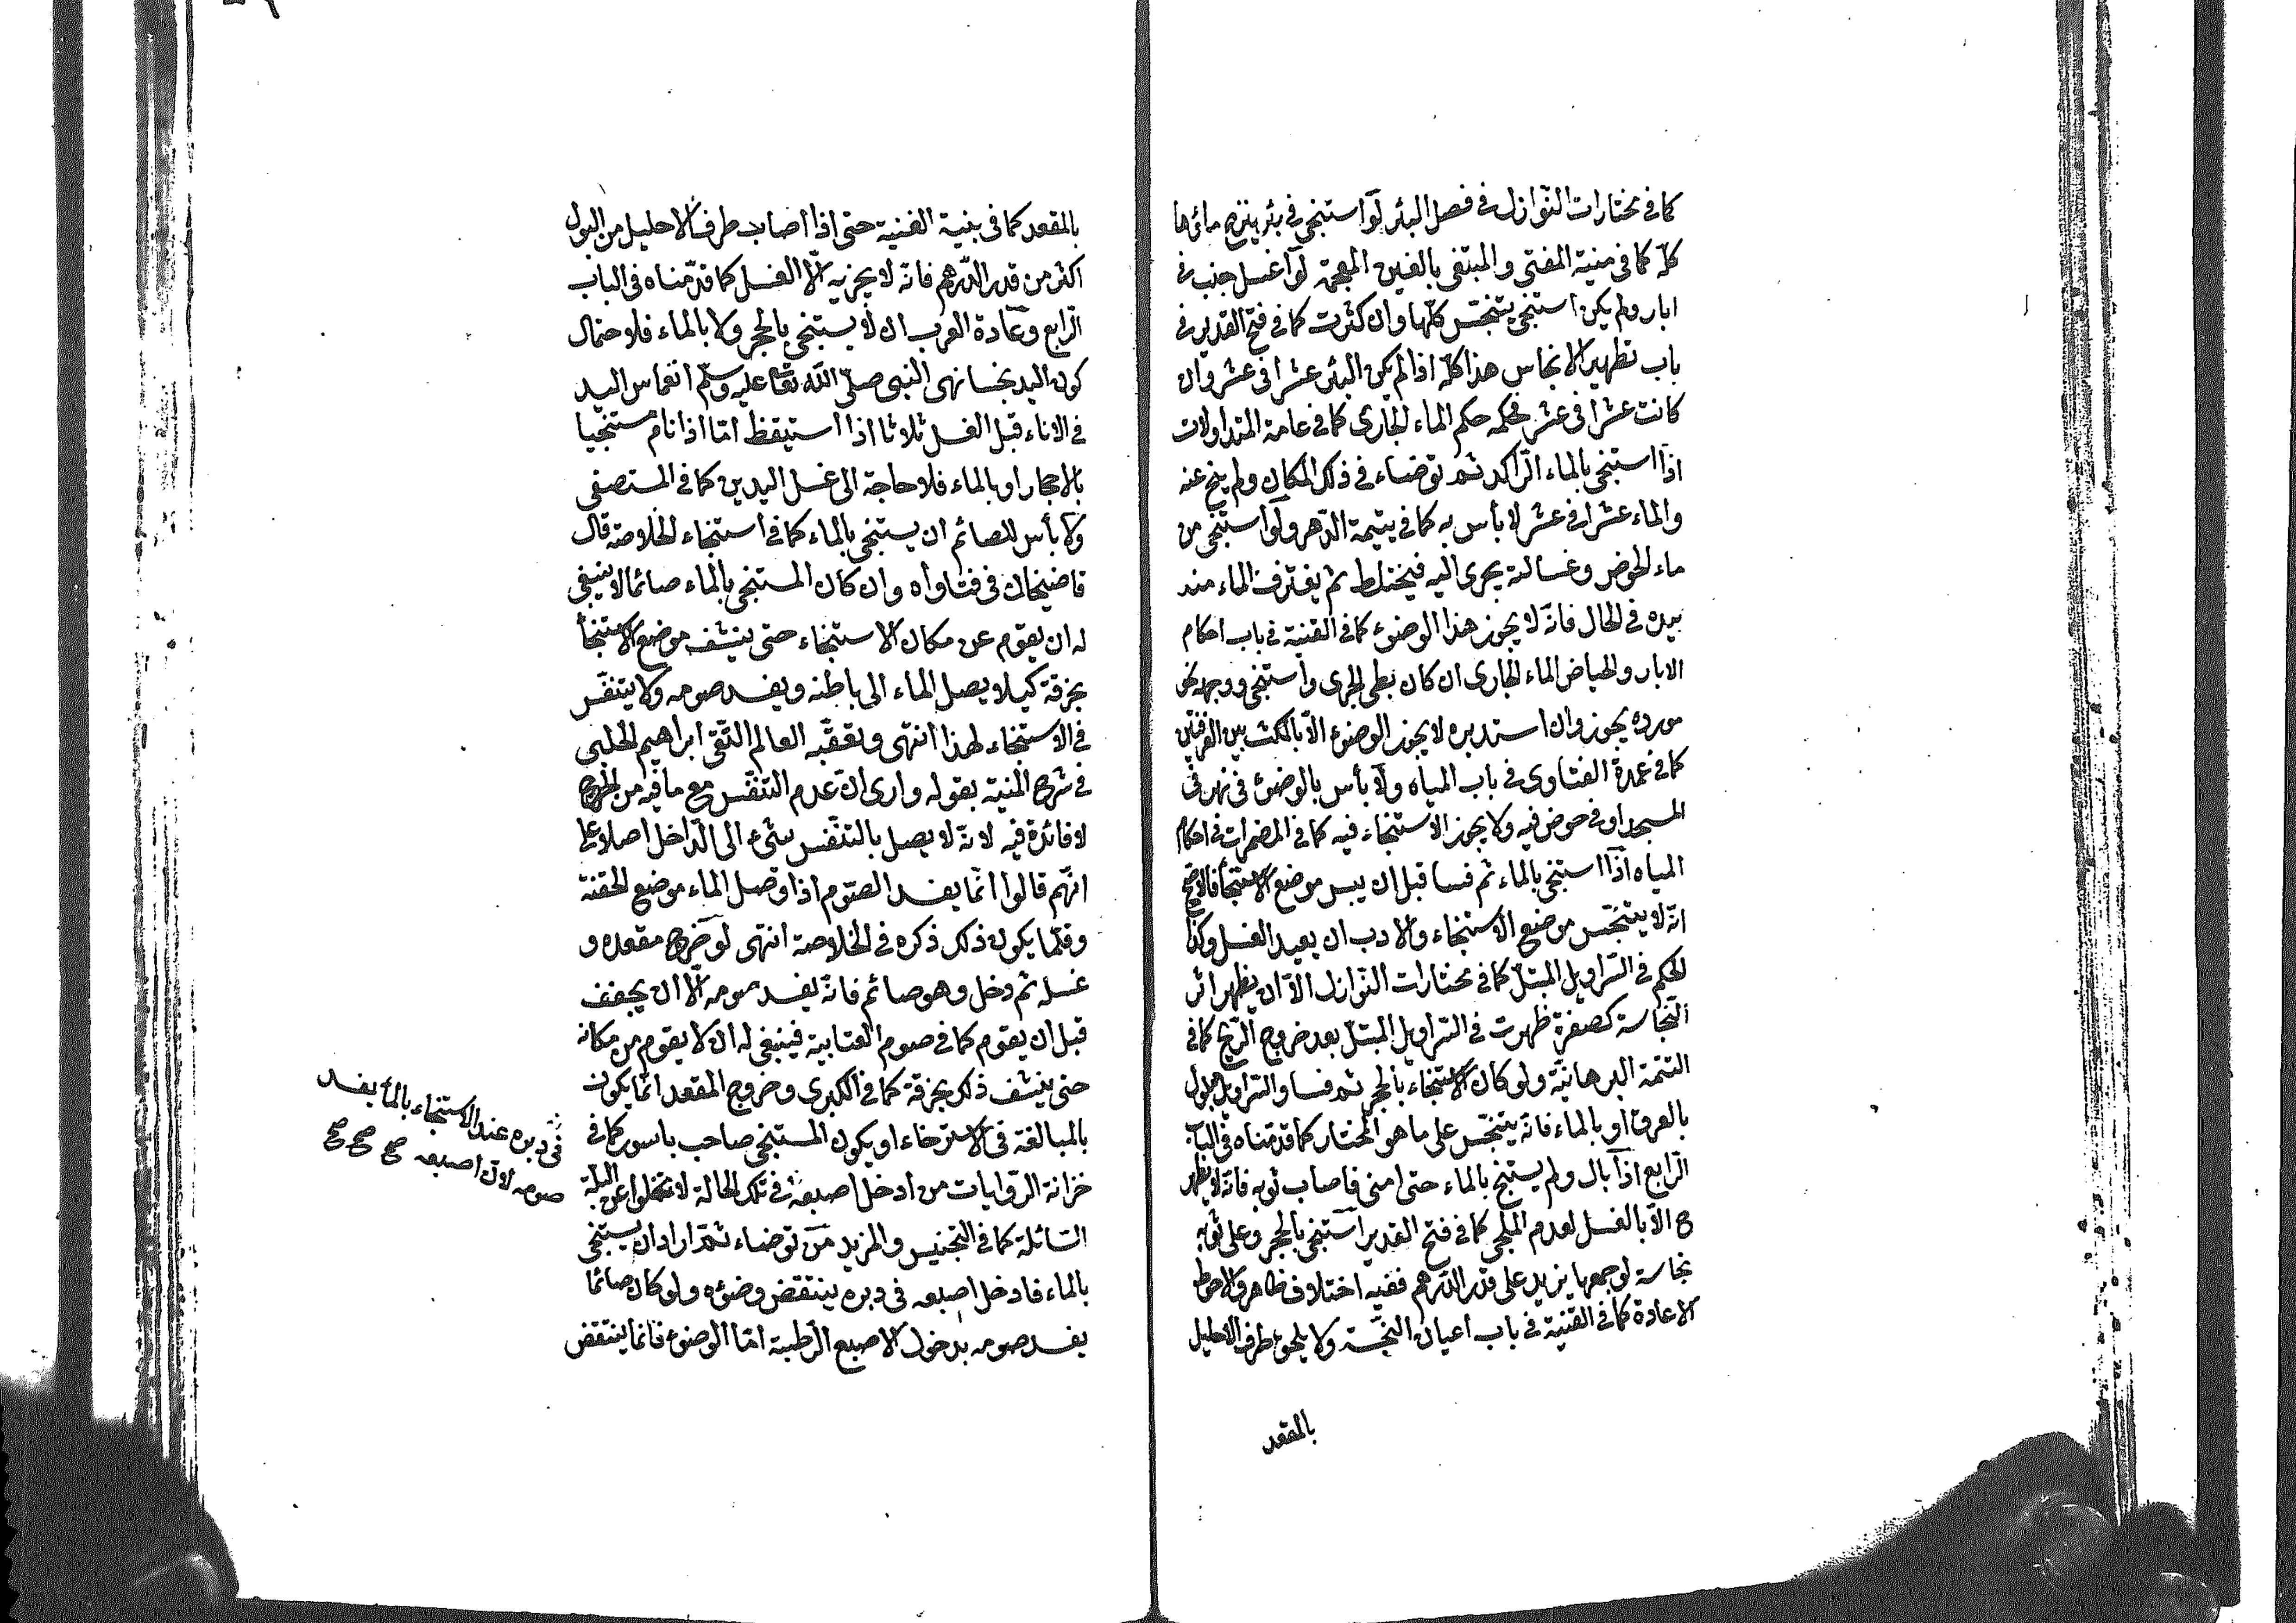 كما فى مختارات النّوازل فى فصل البئر لو استنجى فى بئر ينزح مائها
كلّه كما فى منية المفتى والمبتغى بالغين المعجمة لو اغسل جنب فى
ابار ولم يكن استنجى يتنجّس كلّها وان كثرت كما فى فتح القدير فى
باب تطهير الانجاس هذا كلّه اذا لم يكن البئر عشرا فى عشر وان
كانت عشرا فى عشر فحكمه حكم الماء الجارى كما فى عامة المتداولات
اذا استنجى بالماء الرّاكد ثم توضاء فى ذلك المكان ولم ينح عنه
والماء عشرا فى عشر لا بأس به كما فى يتيمة الدّهر ولو استنجى من
ماء الحوض وغسالته يجرى اليه فيختلط ثم يغترف الماء منه
بيده فى الحال فانّه لا يجوز هذا الوضوء كما فى القنية فى باب احكام
الابار والحياض الماء الجارى ان كان بطى الجرى واستنجى ووجهه نحو
مورده يجوز وان استدبره لا يجوز الوضوء الّا بالمكث بين الغرفتين
كما فى عمدة الفتاوى فى باب المياه ولا بأس بالوضوء فى نهر فى
المسجد او فى حوض فيه ولا يجوز الاستنجاء فيه كما فى المضمرات فى احكام
المياه اذا استنجى بالماء ثم فسا قبل ان ييبس موضع الاستنجأ فالاصح
انّه لا يتنجّس موضع الاستنجاء والادب ان يعيد الغسل وكذا
الحكم فى السّراويل المبتلّ كما فى مختارات النّوازل الّا ان يظهر اثر
النّجاسة كصفرة ظهرت فى السّراويل المبتلّ بعد خروج الرّيح كما فى
التتمة البرهانيّة ولو كان الاستنجاء بالحجر ثم فسا والسّراويل مبلول
بالعرق او بالماء فانّه يتنجّس على ما هو المختار كما قدّمناه فى الباب
الرّابع اذا بال ولم يستنج بالماء حتى امنى فاصاب ثوبه فانّه لا يطهر
ح الّا بالغسل لعدم الملجى كما فى فتح القدير استنجى بالحجر وعلى ثوبه
نجاسة لو جمعها يزيد على قدر الدّرهم ففيه اختلاف ظاهر والاحوط
الاعادة كما فى القنية فى باب اعيان النّجسة ولا يلحق طرف الاحليل
بالمقعد
بالمقعد كما فى بنية الغنية حتى اذا اصاب طرف الاحليل من البول
اكثر من قدر الدّرهم فانّه لا يجزيه الّا الغسل كما قدّمناه فى الباب
الرّابع وعادة العرب ان لا يستنجى بالحجر ولا بالماء فلاحتمال
كون اليد نجسا نهى النبى صلّى اللّه تعا عليه وسلّم انغماس اليد
فى الاناء قبل الغسل ثلاثا اذا استيقظ امّا اذا نام مستنجيا
بالاحجار او بالماء فلا حاجة الى غسل اليدين كما فى المستصفى
ولا بأس للصائم ان يستنجى بالماء كما فى استنجاء الخلاصة قال
قاضيخان فى فتاواه وان كان المستنجى بالماء صائما لا ينبغى
له ان يقوم عن مكان الاستنجاء حتى ينشف موضع الاستنجأ
بخرقة كيلا يصل الماء الى باطنه ويفسد صومه ولا يتنفّس
فى الاستنجاء لهذا انتهى وتعقّبه العالم التقى ابراهيم الحلبى
فى شرح المنية بقوله وارى انّ عدم التنفّس مع ما فيه من الحرج
لا فائدة فيه لانّه لا يصل بالتنفّس شئ الى الدّاخل اصلا على
انّهم قالوا انّما يفسد الصّوم اذا وصل الماء موضع الحقنة
وقلّما يكون ذلك ذكره فى الخلاصة انتهى لو خرج مقعده و
غسله ثم دخل وهو صائم فانّه يفسد صومه الّا ان يجفف
قبل ان يقوم كما فى صوم العتابية فينبغى له ان لا يقوم من مكانه
حتى ينشف ذلك بخرقة كما فى الكبرى وخروج المقعد انّما يكون
بالمبالغة فى الاسترخاء او يكون المستنجى صاحب باسور كما فى
خزانة الرّوايات من ادخل اصبعه فى تلك الحالة لا تخلوا عن البلّة
السّائلة كما فى التجنيس والمزيد من توضاء ثمّ اراد ان يستنجى
بالماء فادخل اصبعه فى دبره ينتقض وضوئه ولو كان صائما
يفسد صومه بدخول الاصبع الرّطبة امّا الوضوء فانّما ينتقض
فى دبره عند الاستنجاء بالمأ يفسد
صومه لانّ اصبعه صح صح صح